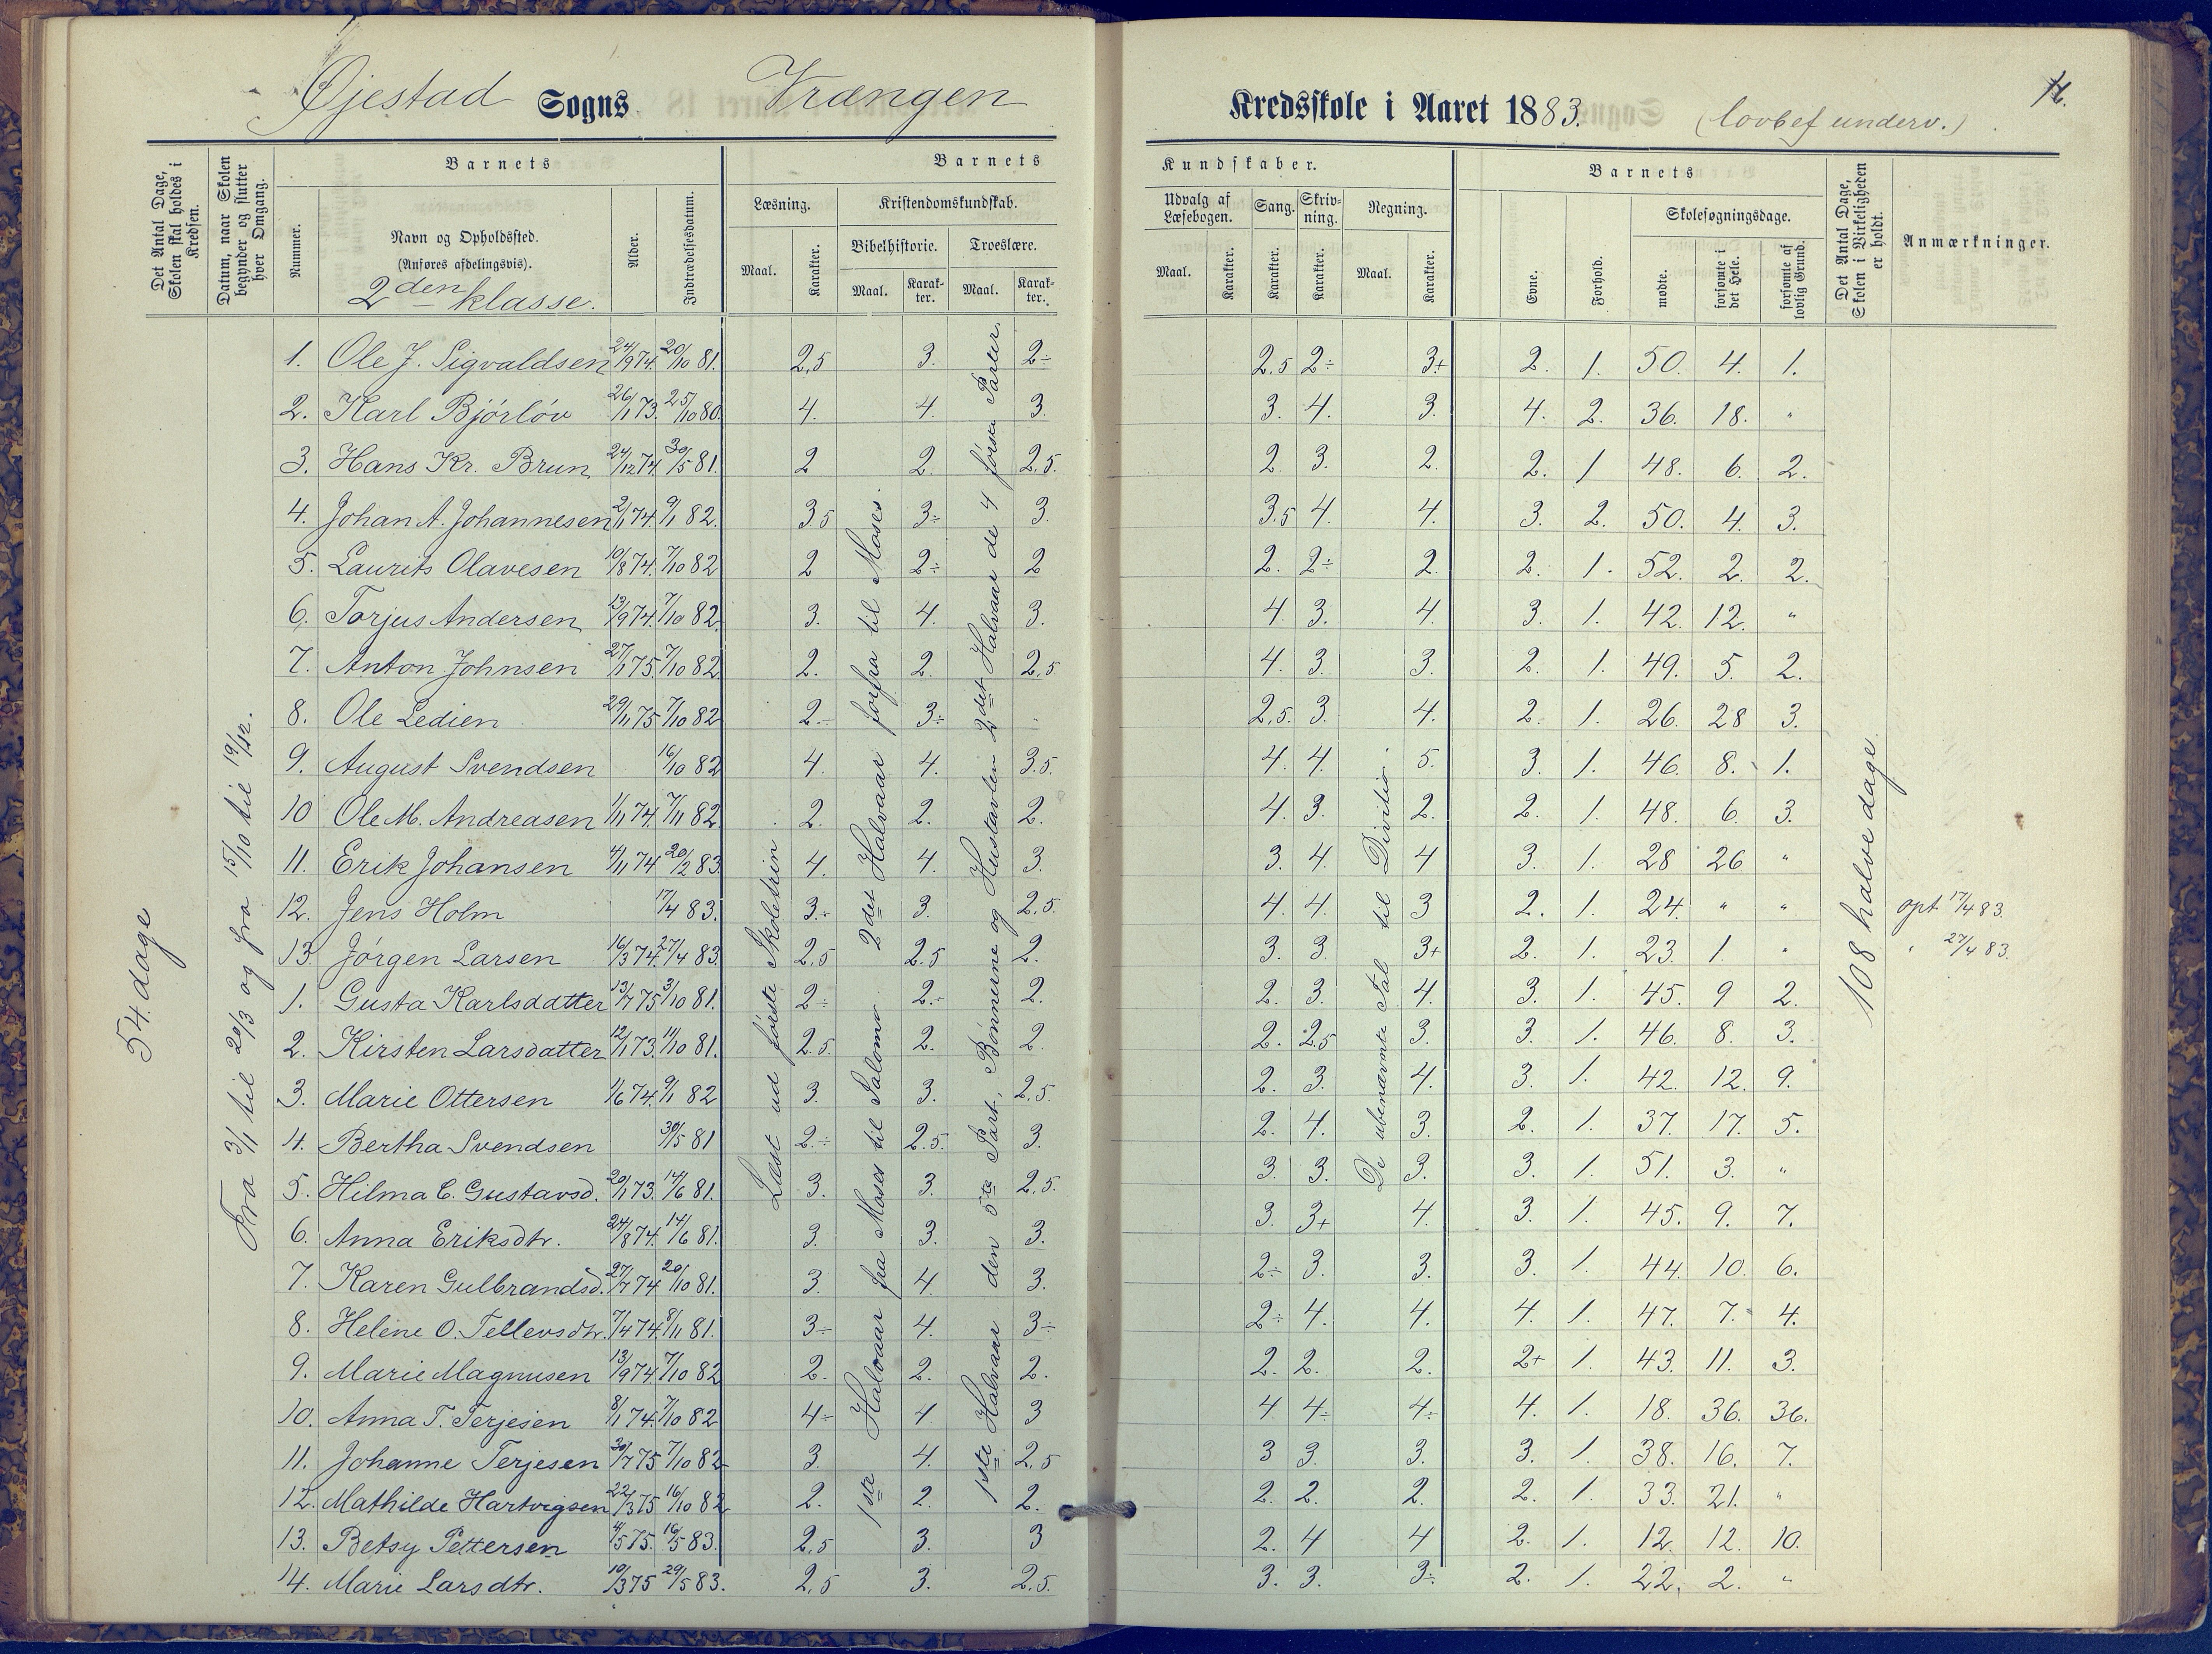 Øjestad Sogns Vrængen Kredsskole i Aaret 1883. (lovbef underv.)
Det Antal Dage, Skolen skal holdes i Kredsen.
Datum, naar Skolen begynder og slutter hver Omgang.
Barnets
Nummer.
Navn og Opholdssted.
(Anføres afdelingsvis).
2den klasse.
Alder.
Indtrædelsesdatum.
Barnets Kundskaber.
Læsning.
Maal. Karakter.
Kristendomskundskab.
Bibelhistorie.
Maal. Karakter.
Troeslære.
Maal. Karakter.
Udvalg af Læsebogen.
Maal. Karakter.
Sang.
Karakter.
Skrivning.
Karakter.
Regning.
Maal. Karakter.
Barnets
Evne.
Forhold.
Skolesøgningsdage.
mødte.
forsømte i det Hele.
forsømte af lovlig Grund.
Det Antal Dage, Skolen i Virkeligheden er holdt.
Anmærkninger.
54 dage
Fra 3/1 til 20/3 og fra 15/10 til 19/12.
1. Ole J. Sigvaldsen 24/9 74. 20/10 81. 2,5 3. 2÷ 2.5 2÷ 3+ 2. 1. 50. 4. 1.
2. Karl Bjórlóv 26/1 73. 25/10 80. 4. 4. 3. 3. 4. 3. 4. 2. 36. 18. "
3. Hans Kr. Brun 24/12 74. 30/5 81. 2 2. 2.5. 2. 3. 2. 2. 1 48. 6. 2.
4. Johan A. Johannesen 2/1 74. 9/1 82. 3 5 3÷ 3. 3.5 4. 4. 3. 2. 50. 4. 3.
5. Laurits Olavesen 10/8 74. 7/10 82 2 2÷ 2 2. 2÷ 2. 2. 1. 52. 2. 2.
6. Torjus Andersen 13/9 74. 7/10 82. 3. 4. 3. 4. 3. 4. 3. 1. 42. 12. "
7. Anton Johnsen 27/1 75. 7/10 82 2. 2. 2,5 4. 3. 3. 2. 1. 49. 5. 2.
8. Ole Ledien 29/11 75 7/10 82 2.÷ 3÷ 2,5. 3. 4. 2. 1. 26. 28 3.
9. August Svendsen 16/10 82 4. 4. 3.5. 4. 4. 5. 3. 1. 46. 8. 1.
10 Ole M. Andreasen 1/11 74. 7/11 82. 2. 2. 2. 4. 3. 2. 2. 1. 48. 6. 3.
11. Erik Johansen 4/11 74 20/2 83. 4. 4. 3. 3. 4. 4 3. 1. 28 26 "
12. Jens Holm 17/4 83. 3.÷ 3. 2.5. 4. 4. 3 2. 1. 24. " " opt 17/4 83.
13. Jórgen Larsen 16/3 74. 27/4 83. 2,5 2.5 2. 3. 3. 3+ 2. 1. 23. 1. " " 27/4 83.
1. Gusta Karlsdatter 13/7 75 3/10 81. 2÷ 2.÷ 2. 2. 3. 4. 3. 1. 45. 9 2.
2. Kirsten Larsdatter 12/1 73. 11/10 81. 2.5. 2. 2. 2. 2.5 3. 3. 1. 46. 8. 3.
3. Marie Ottersen 1/6 74. 9/1 82 3. 3. 2,5. 2. 3. 4. 3. 1. 42. 12. 9.
4. Bertha Svendsen 30/5 81 2.÷ 2.5. 3. 2. 4. 3. 2. 1. 37. 17. 5.
5. Hilma C. Gustavsd. 20/1 73. 14/6 81. 3. 3. 2,5. 3. 3. 3. 3. 1. 51. 3. "
6. Anna Eriksdtr. 24/8 74. 14/6 81. 3. 3. 3. 3. 3+ 4. 3. 1. 45. 9. 7.
7. Karen Gulbrandsd. 27/7 74 20/10 81. 3. 4. 3. 2÷ 3. 3. 3. 1. 44. 10. 6.
8. Helene O. Tellevsdtr. 7/4 74. 8/11 81. 3÷ 4. 3÷ 2÷ 4. 4. 4. 1. 47. 7. 4.
9. Marie Magnusen 13/9 74. 7/10 82 2. 2. 2. 2. 2. 2. 2+ 1. 43. 11. 3.
10. Anna T. Terjesen 8/1 74. 7/10 82 4÷ 4. 3 4 4÷ 4÷ 4. 1. 18. 36. 36.
11. Johanne Terjesen 30/7 75 7/10 82 3. 4. 2,5 3 3. 3. 3. 1. 38. 16. 7.
12. Mathilde Hartvigsen 22/3 75 16/10 82 2. 2. 2. 2. 2. 2. 2. 1. 33. 21. "
13. Betsy Pettersen 4/5 75. 16/5 83. 2,5 3. 3 2. 4 4 2. 1. 12. 12. 10.
14. Marie Larsdtr. 10/3 75 29/5 83. 2,5 3. 2.5. 3. 3. 3÷ 2. 1. 22. 2. "
Læst ud förste Skoletrin
1ste Halvaar fra Moses til Salomo. 2det Halvaar forfra til Moses.
1ste Halvaar den 5te Part, Bönnerne og Hustavlen 2det Halvaar de 4 förste Parter.
De ubenævnte Tal til Divition.
108 halve dage